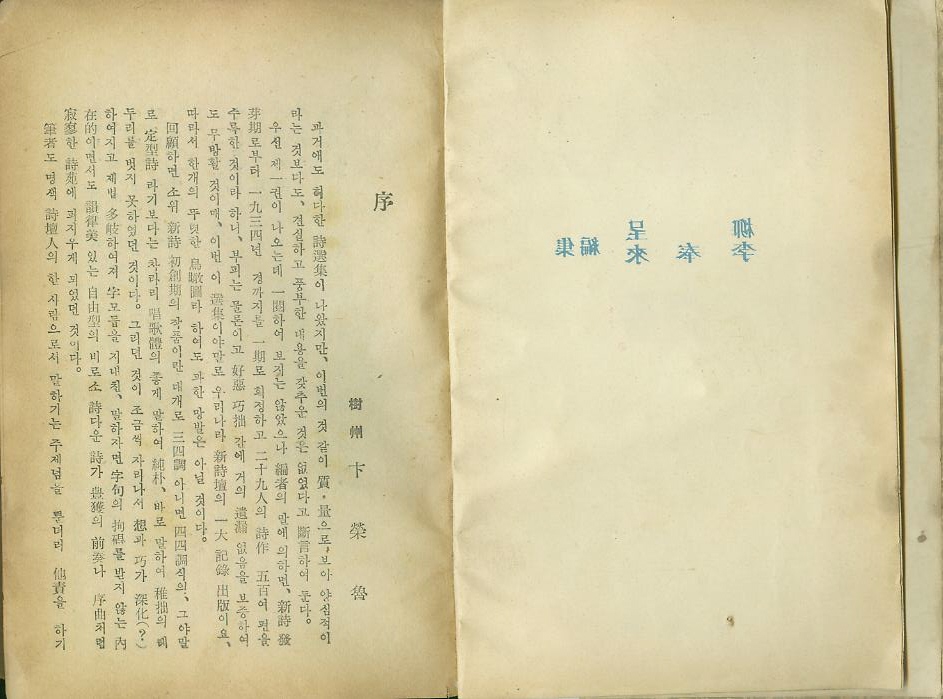 柳呈
李奉來 編集
序
樹州 卞榮魯
과거에도 허다한 詩選集이 나왔지만, 이번의 것 같이 質·量으로 보아 양심적이
라는 것보다도, 건실하고 풍부한 내용을 갖추운 것은 없었다고 斷言하여 둔다。
우선 제一권이 나오는데 一閱하여 보지는 않았으나 編者의 말에 의하면, 新詩 發
芽期로부터 一九三四년 경까지를 一期로 획정하고 二十九人의 詩作 五百여 편을
수록한 것이라 하니, 부피는 물론이고 好惡 巧拙 간에 거의 遺漏 없음을 보증하여
도 무방할 것이매, 이번 이 選集이야말로 우리나라 新詩壇의 一大 記錄 出版이요、
따라서 한개의 뚜렷한 鳥瞰圖라 하여도 과한 망발은 아닐 것이다。
回顧하면 소위 新詩 初創期의 작품이란 대개로 三四調 아니면 四四調식의、그야말
로 定型詩 라기보다는 차라리 唱歌體의 좋게 말하여 純朴、바로 말하여 稚拙의 테
두리를 벗지 못하였던 것이다。그러던 것이 조금씩 자리나서 想과 巧가 深化(?)
하여지고 제법 多岐하여져 字모듬을 지내친、말하자면 字句의 拘碍를 받지 않는 內
在的이면서도 韻律美 있는 自由型의 비로소 詩다운 詩가 豊穫의 前奏나 序曲처럼
寂寥한 詩苑에 피지우게 되었던 것이다。
筆者도 명색 詩壇人의 한 사람으로서 말하기는 주제넘을 뿐더러 他責을 하기